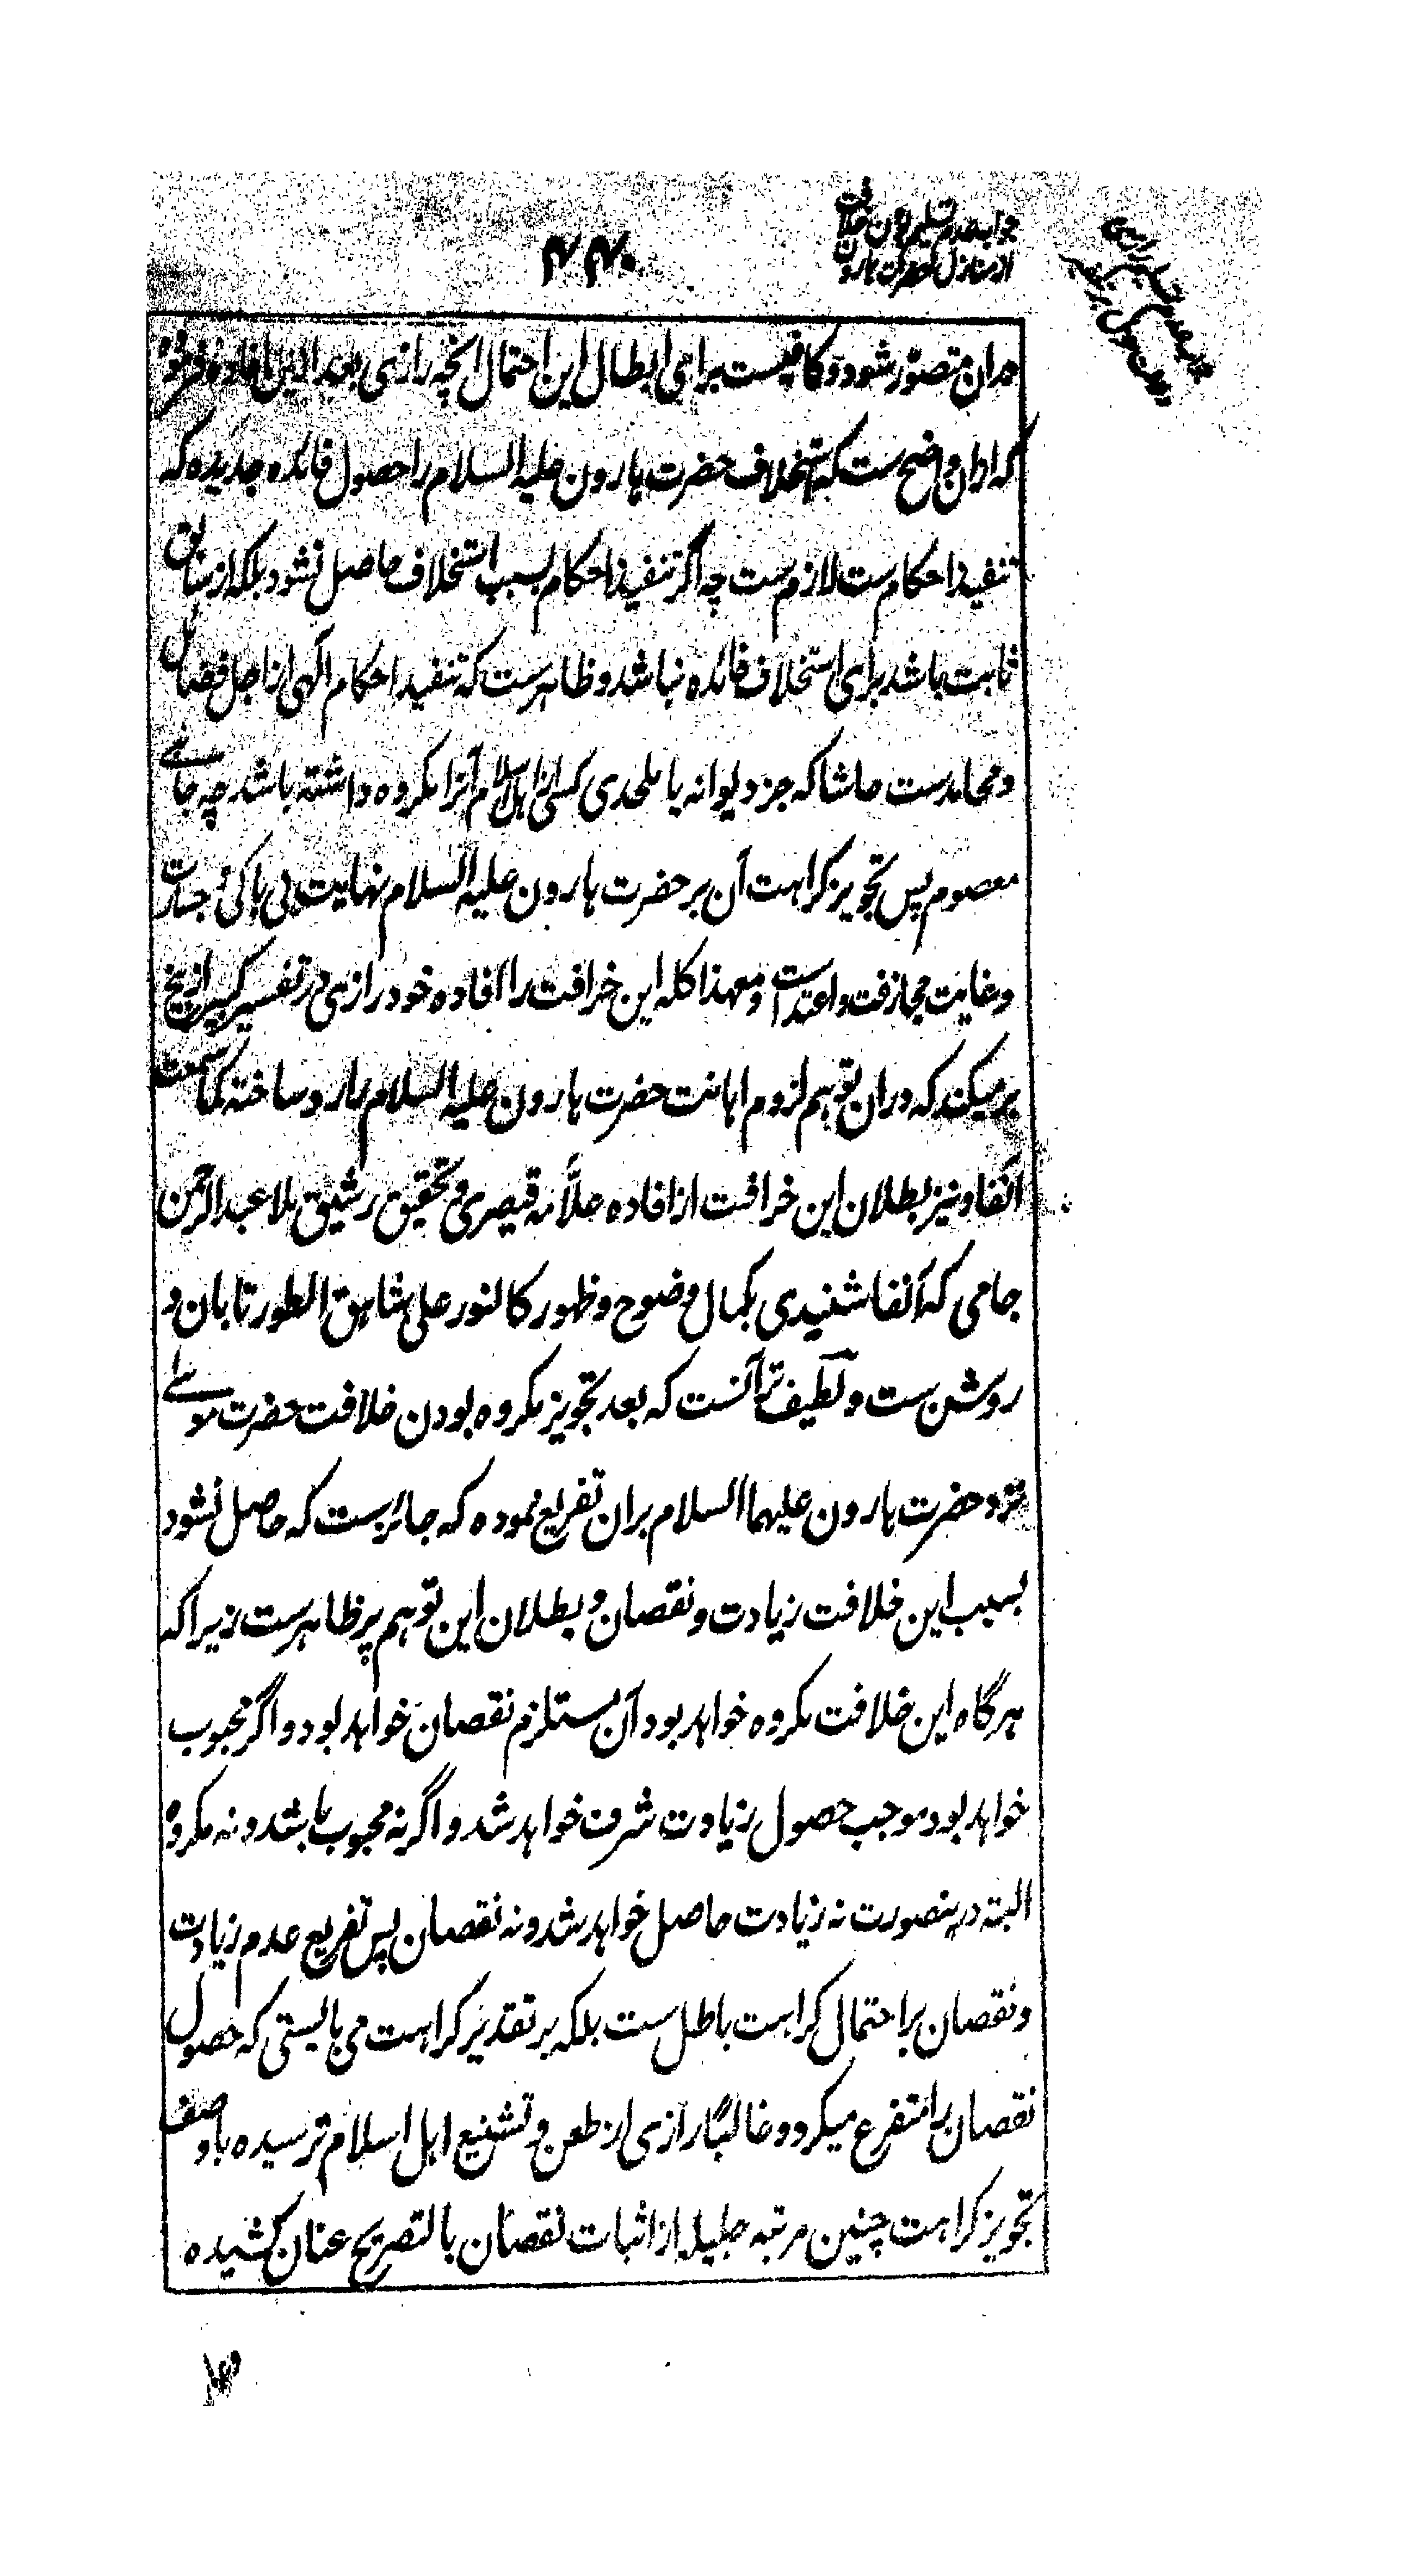 ۴۴۰
جواب عدم تسلیم بودن خلافت
از منازل حضرت هارون
دران متصوّر شود و کافیست برای ابطال این احتمال آنچه رازی بعد ازین افاده فرموده
که ازان واضح ست که استخلاف حضرت هارون علیه السلام را حصول فائده جدیده که
تنفیذ احکام ست لازم ست چه اگر تنفیذ احکام بسبب استخلاف حاصل نشود بلکه از سابق
ثابت باشد برای استخلاف فائده نباشد و ظاهرست که تنفید احکام آلهی از اجل فضائل
و محامدست حاشا که جز دیوانه یا ملحدی کسی از اهل اسلام آنرا مکروه داشته باشد چه جای
معصوم پس تجویز کراهت آن بر حضرت هارون علیه السلام نهایت بی باکی و جسارت
و غایت مجازفت و اعتداست و معهذا کله این خرافت را افاده خود رازی در تفسیر کبیر از بیخ
بر میکند که دران توهم لزوم اهانت حضرت هارون علیه السلام را رد ساخته کما سمعت
آنفا و نیز بطلان این خرافت از افاده علّامه قیصری و تحقیق رشیق ملا عبد الرحمن
جامی که آنفا شنیدی بکمال وضوح و ظهور کالنور علی شاهق الطور تابان و
روشن ست و لطیف تر آنست که بعد تجویز مکروه بودن خلافت حضرت موسی
نزد حضرت هارون علیهما السلام بران تفریع نموده که جائزست که حاصل نشود
بسبب این خلافت زیادت و نقصان و بطلان این توهم پر ظاهرست زیرا که
هرگاه این خلافت مکروه خواهد بود آن مستلزم نقصان خواهد بود و اگر محبوب
خواهد بود موجب حصول زیادت شرف خواهد شد و اگر نه محبوب باشد و نه مکروه
البته درینصورت نه زیادت حاصل خواهد شد و نه نقصان پس تفریع عدم زیادت
و نقصان بر احتمال کراهت باطل ست بلکه بر تقدیر کراهت می بایستی که حصول
نقصان را متفرع میکرد و غالبًا رازی از طعن و تشنیع اهل اسلام ترسیده باوصف
تجویز کراهت چنین مرتبه جلیله از اثبات نقصان بالتصریح عنان کشیده